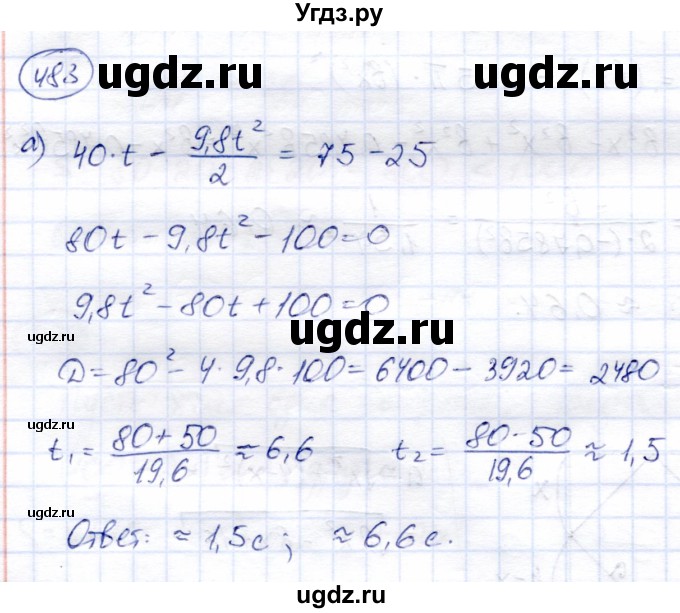 Угдз.ру
483
ugdz.ru ugdz.ru
а) 40·t − 9,8t²/2 = 75 − 25
80t − 9,8t² − 100 = 0
9,8t² − 80t + 100 = 0
ugdz.ru ugdz.ru
D = 80² − 4·9,8·100 = 6400 − 3920 = 2480
ugdz.ru
t₁ = (80 + 50)/19,6 ≈ 6,6 t₂ = (80 − 50)/19,6 ≈ 1,5
ugdz.ru ugdz.ru
Ответ: ≈ 1,5 с; ≈ 6,6 с.
ugdz.ru ugdz.ru